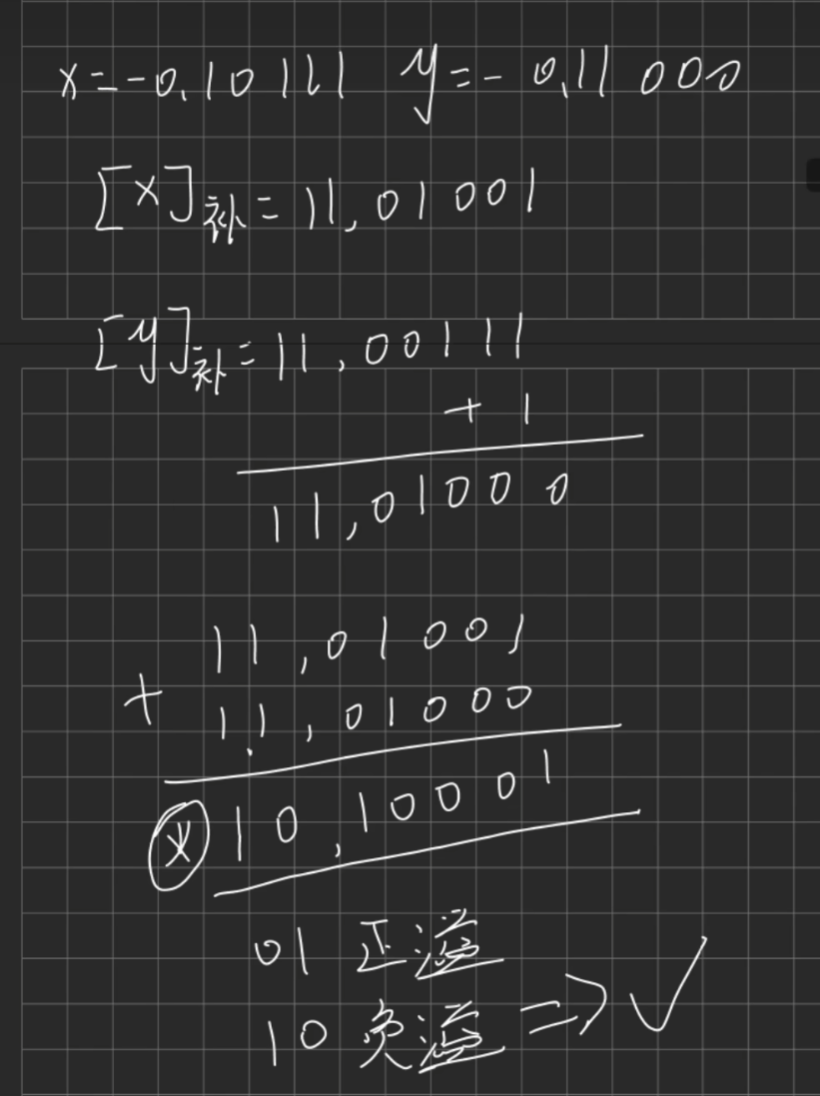 x=-0.10111 y=-0.11000
[x]补=11,01001
[y]补=11,00111
+1
11,01000
11,01001
+ 11,01000
10,10001
01 正溢
10 负溢 => ✓